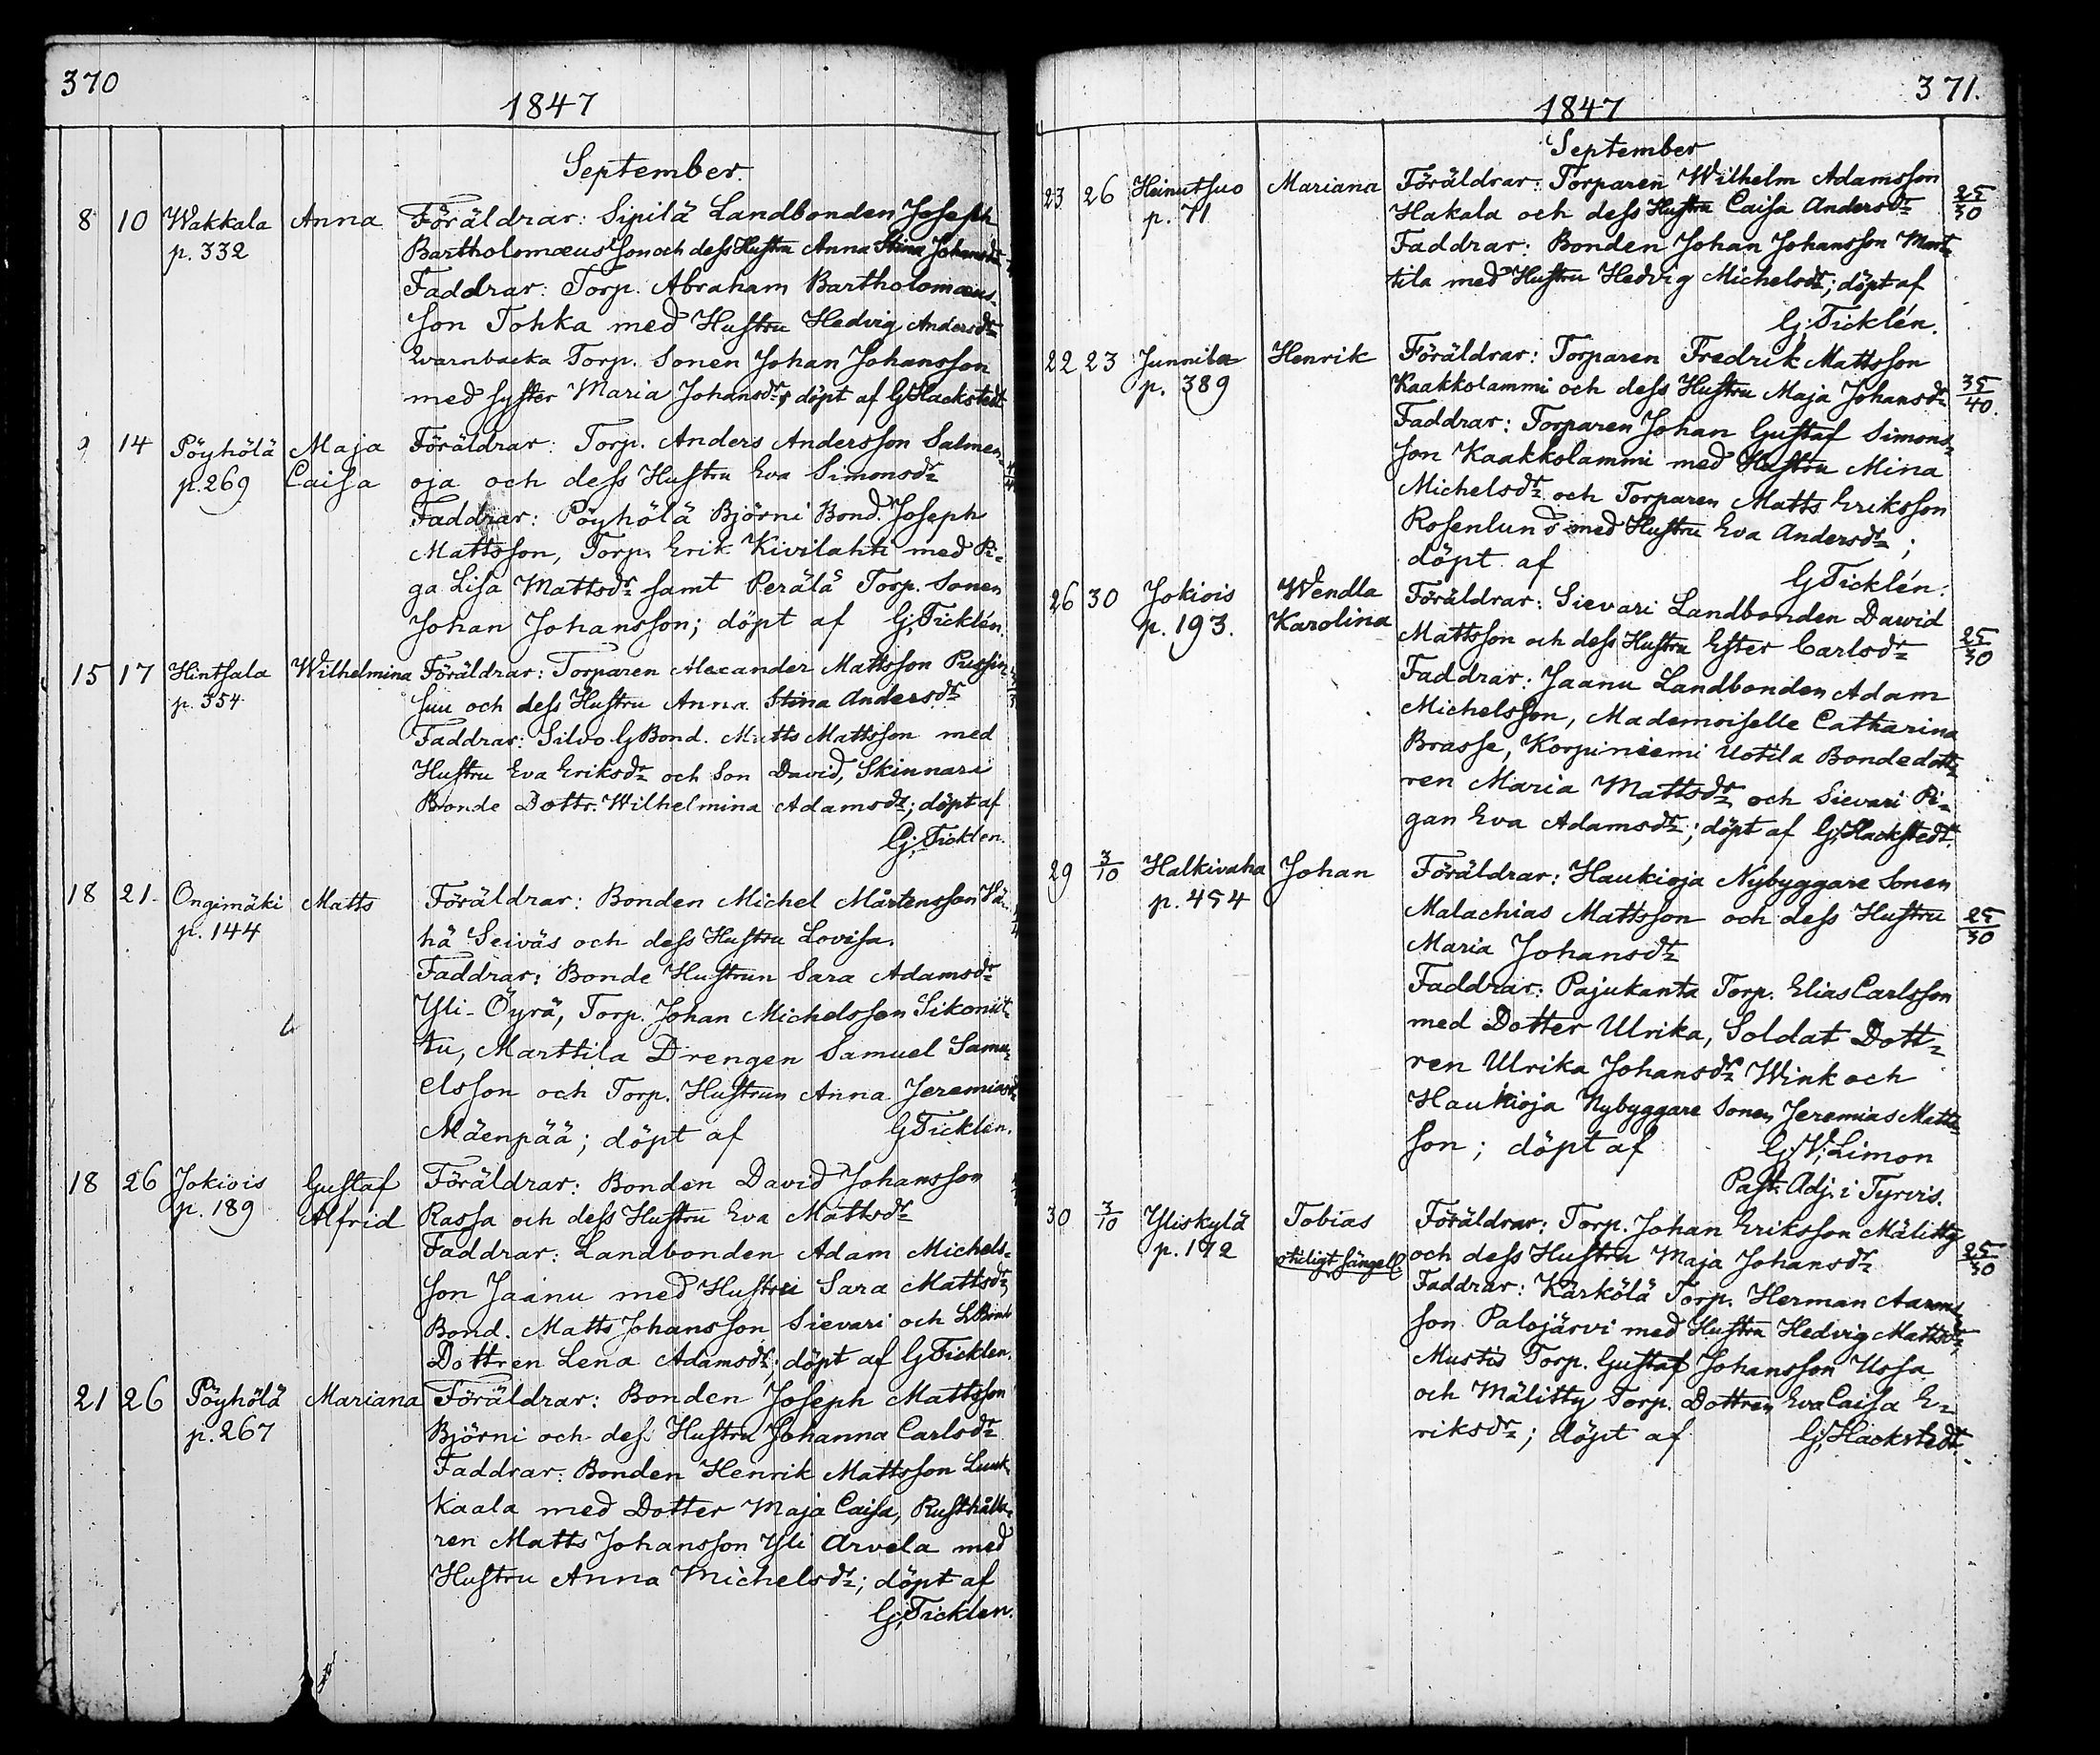 370
1847
September.
8 10 Wakkala Anna Föräldrar: Sipilä Landbonden Joseph
p. 332 Bartholomæusson och dess Hustru Anna Stina Johansdr
Faddrar: Torp. Abraham Bartholomæus-
son Tohka med Hustru Hedvig Andersdr
Torp. Sonen Johan Johansson
med syster Maria Johansdr, döpt af G Hackstedt
9 14 Pöyhölä Maja Föräldrar: Torp. Anders Andersson Salmen-
p. 269 Caisa oja och dess Hustru Eva Simonsdr
Faddrar: Pöyhölä Björni Bond. Joseph
Mattsson, Torp. Erik Kivilahti med Pi-
ga Lisa Mattsdr samt Perälä Torp. Sonen
Johan Johansson; döpt af G. Ticklén.
15 17 Hintsala Wilhelmina Föräldrar: Torparen Alexander Mattsson Pussin-
p. 354 suu och dess Hustru Anna Stina Andersdr
Faddrar: Silvo G Bond. Matts Mattsson med
Hustru Eva Eriksdr och Son David, Skinnari
Bonde Dottr. Wilhelmina Adamsdr; döpt af
G. Ticklen.
18 21. Ongimäki Matts Föräldrar: Bonden Michel Mårtensson Vä-
p. 144 hä Seiväs och dess Hustru Lovisa.
Faddrar: Bonde Hustrun Sara Adamsdr
Yli-Öyrä, Torp. Johan Michelsson Sikoniit-
tu, Marttila Drengen Samuel Samu-
elsson och Torp. Hustrun Anna Jeremiasdr
Mäenpää; döpt af G Ticklen.
18 26 Jokiois Gustaf Föräldrar: Bonden David Johansson
p. 189 Alfrid Rassa och dess Hustru Eva Mattsdr
Faddrar: Landbonden Adam Michels-
son Jaanu med Hustru Sara Mattsdr,
Bond. Matts Johansson Sievari och LBonde
Dottren Lena Adamsdr; döpt af G Ticklen.
21 26 Pöyhölä Mariana Föräldrar: Bonden Joseph Mattsson
p. 267 Björni och dess Hustru Johanna Carlsdr
Faddrar: Bonden Henrik Mattsson Luuk-
kaala med Dotter Maja Caisa, Rusthålla-
ren Matts Johansson Yli Arvela med
Hustru Anna Michelsdr; döpt af
G. Ticklen.
371.
1847
September
23 26 Heinutsuo Mariana Föräldrar: Torparen Wilhelm Adamsson 25/30
p. 71 Hakala och dess Hustru Caisa Andersdr
Faddrar: Bonden Johan Johansson Mart-
tila med Hustru Hedvig Michelsdr; döpt af
G. Ticklén.
22 23 Junnila Henrik Föräldrar: Torparen Fredrik Mattsson
p. 389 Kaakkolammi och dess Hustru Maja Johansdr 35/40.
Faddrar: Torparen Johan Gustaf Simons-
son Kaakkolammi med Hustru Mina
Michelsdr och Torparen Matts Eriksson
Rosenlund med Hustru Eva Andersdr;
döpt af G Ticklén.
26 30 Jokiois Wendla Föräldrar: Sievari Landbonden Dawid
p. 193. Karolina Mattsson och dess Hustru Ester Carlsdr 25/30
Faddrar: Jaanu Landbonden Adam
Michelsson, Mademoiselle Catharina
Brasse, Korpiniemi Uotila Bondedott-
ren Maria Mattsdr och Sievari Pi-
gan Eva Adamsdr; döpt af G. Hackstedt.
29 3/10 Halkivaha Johan Föräldrar: Haukioja Nybyggare Sonen
p. 454 Malachias Mattsson och dess Hustru 25/30
Maria Johansdr
Faddrar: Pajukanta Torp. Elias Carlsson
med Dotter Ulrika, Soldat Dott-
ren Ulrika Johansdr Wink och
Haukioja Nybyggare Sonen Jeremias Matts-
son; döpt af G. V. Limon
Past. Adj. i Tyrvis.
30 3/10 Yliskylä Tobias Föräldrar: Torp. Johan Eriksson Mälitty
p. 172 och dess Hustru Maja Johansdr 25/30
Faddrar: Kärkölä Torp. Herman Aarons-
son Palojärvi med Hustru Hedvig Mattsdr,
Mustis Torp. Gustaf Johansson Ussa
och Mälitty Torp. Dottren Eva Caisa E-
riksdr; döpt af G. Hackstedt.